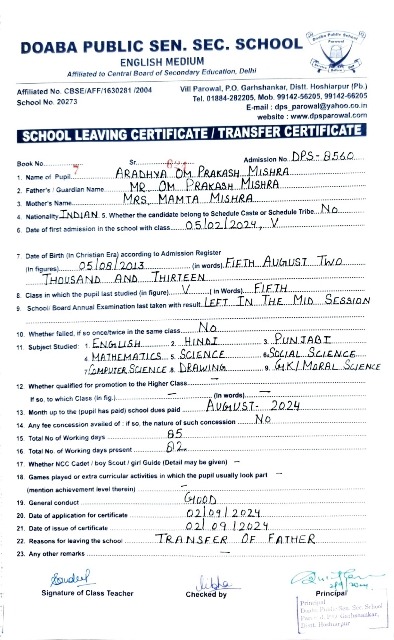 DOABA PUBLIC SEN. SEC. SCHOOL
ENGLISH MEDIUM
Affiliated to Central Board of Secondary Education, Delhi
Affiliated No. CBSE/AFF/1630281 /2004
School No. 20273
Vill Parowal, P.O. Garhshankar, Distt. Hoshiarpur (Pb.)
Tel. 01884-282205, Mob. 99142-56205, 99142-66205
E-mail : dps_parowal@yahoo.co.in
website : www.dpsparowal.com
SCHOOL LEAVING CERTIFICATE / TRANSFER CERTIFICATE
Book No. 7 Sr. Admission No. DPS-8560
1. Name of Pupil ARADHYA OM PRAKASH MISHRA
2. Father's / Guardian Name MR. OM PRAKASH MISHRA
3. Mother's Name MRS. MAMTA MISHRA
4. Nationality INDIAN 5. Whether the candidate belong to Schedule Caste or Schedule Tribe No
6. Date of first admission in the school with class 05/02/2024, V
7. Date of Birth (in Christian Era) according to Admission Register
(in figures) 05/08/2013 (in words) FIFTH AUGUST TWO
THOUSAND AND THIRTEEN
8. Class in which the pupil last studied (in figure) V (in Words) FIFTH
9. School/ Board Annual Examination last taken with result LEFT IN THE MID SESSION
10. Whether failed, if so once/twice in the same class No
11. Subject Studied: 1. ENGLISH 2. HINDI 3. PUNJABI
4. MATHEMATICS 5. SCIENCE 6. SOCIAL SCIENCE
7. COMPUTER SCIENCE 8. DRAWING 9. G.K/MORAL SCIENCE
12. Whether qualified for promotion to the Higher Class —
If so, to which Class (in fig.) — (in Words) —
13. Month up to the (pupil has paid) school dues paid AUGUST- 2024
14. Any fee concession availed of : if so, the nature of such concession No
15. Total No of Working days 85
16. Total No of Working days present 82
17. Whether NCC Cadet / boy Scout / girl Guide (Detail may be given) —
18. Games played or extra curricular activities in which the pupil usually look part —
(mention achievement level therein) —
19. General conduct GOOD
20. Date of application for certificate 02/09/2024
21. Date of issue of certificate 02/09/2024
22. Reasons for leaving the school TRANSFER OF FATHER
23. Any other remarks —
Signature of Class Teacher Checked by Principal
Principal
Doaba Public Sen. Sec. School
Parowal, P.O. Garhshankar,
Distt. Hoshiarpur